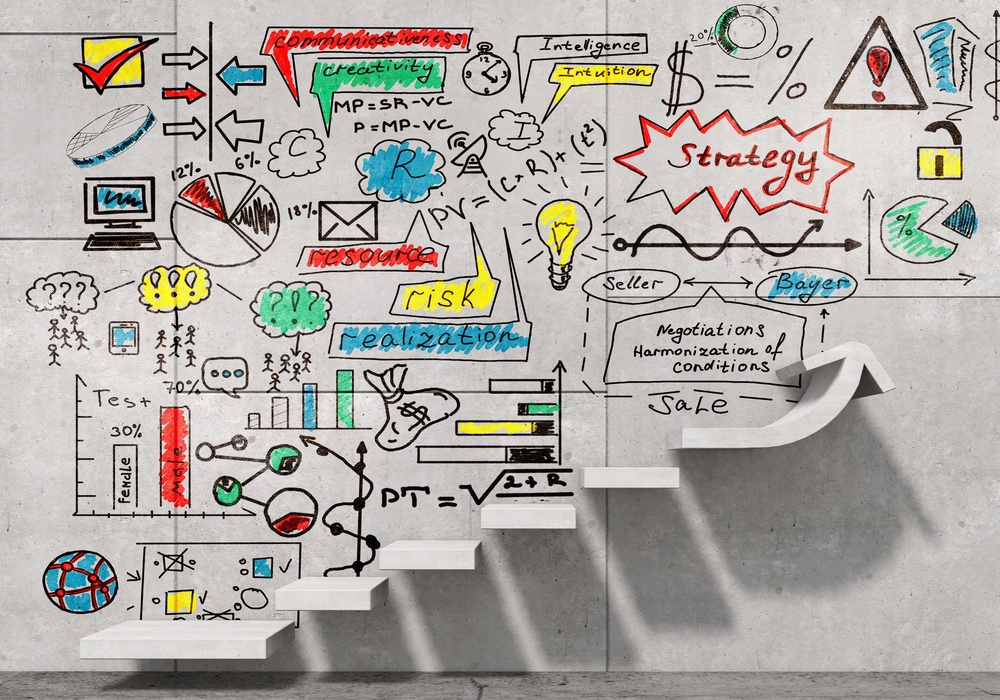 communicativeness
creativity
MP=SR-VC
P=MP-VC
12
Intelligence
Intuition
20%
$ = %
C
R
I
PV = (C+R)+(t²)
=
Strategy
12%
6%
18%
%
resource
risk
realization
Seller
Bayer
Negotiations
Harmonization of
conditions
Sale
???
!!!
?!?
70%
Test
30%
Female
Male
$
PT = √2+R